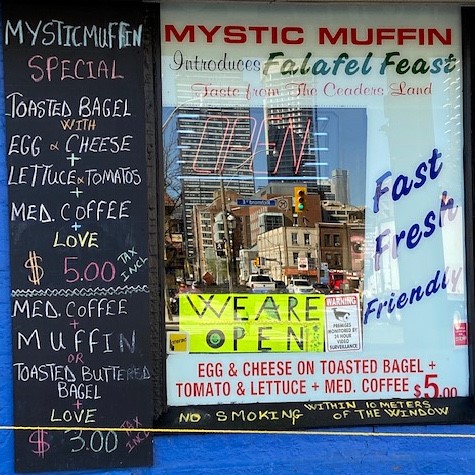 MYSTICMUFFIN
SPECIAL
TOASTED BAGEL
WITH
EGG & CHEESE
+
LETTUCE & TOMATOS
+
MED. COFFEE
+
LOVE
$ 5.00 TAX INCL
MED. COFFEE
+
MUFFIN
OR
TOASTED BUTTERED
BAGEL
+
LOVE
$ 3.00 TAX INCL
MYSTIC MUFFIN
Introduces Falafel Feast
Taste from The Ceaders Land
OPEN
Fast
Fresh
Friendly
WE ARE
OPEN
WARNING
PREMISES
MONITORED BY
24 HOUR
VIDEO
SURVEILLANCE
EGG & CHEESE ON TOASTED BAGEL +
TOMATO & LETTUCE + MED. COFFEE $5.00
NO SMOKING WITHIN 10 METERS
OF THE WINDOW